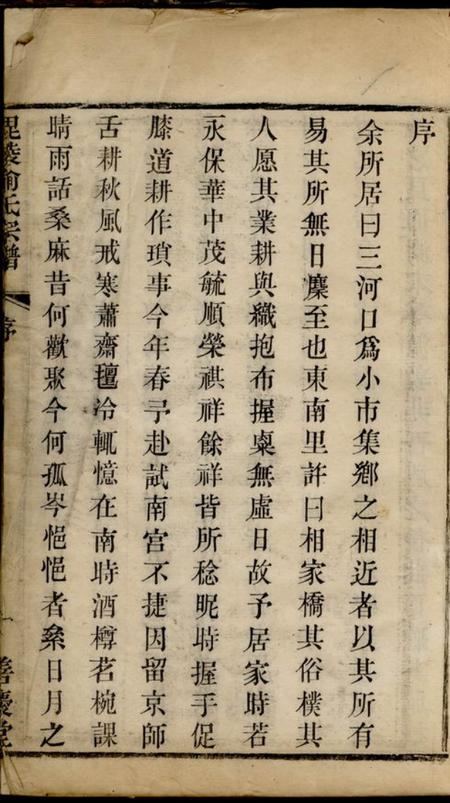 序
余所居曰三河口爲小市集鄉之相近者以其所有
易其所無日麇至也東南里許曰相家橋其俗樸其
人愿其業耕與織抱布握粟無虛日故予居家時若
永保華中茂毓順榮祺祥餘祥皆所稔昵時握手促
膝道耕作瑣事今年春予赴試南宮不捷因留京師
舌耕秋風戒寒蕭齋氊冷輒憶在南時酒樽茗椀課
晴雨話桑麻昔何歡聚今何孤岑悒悒者絫日月之
毘陵俞氏宗譜 序 善慶堂